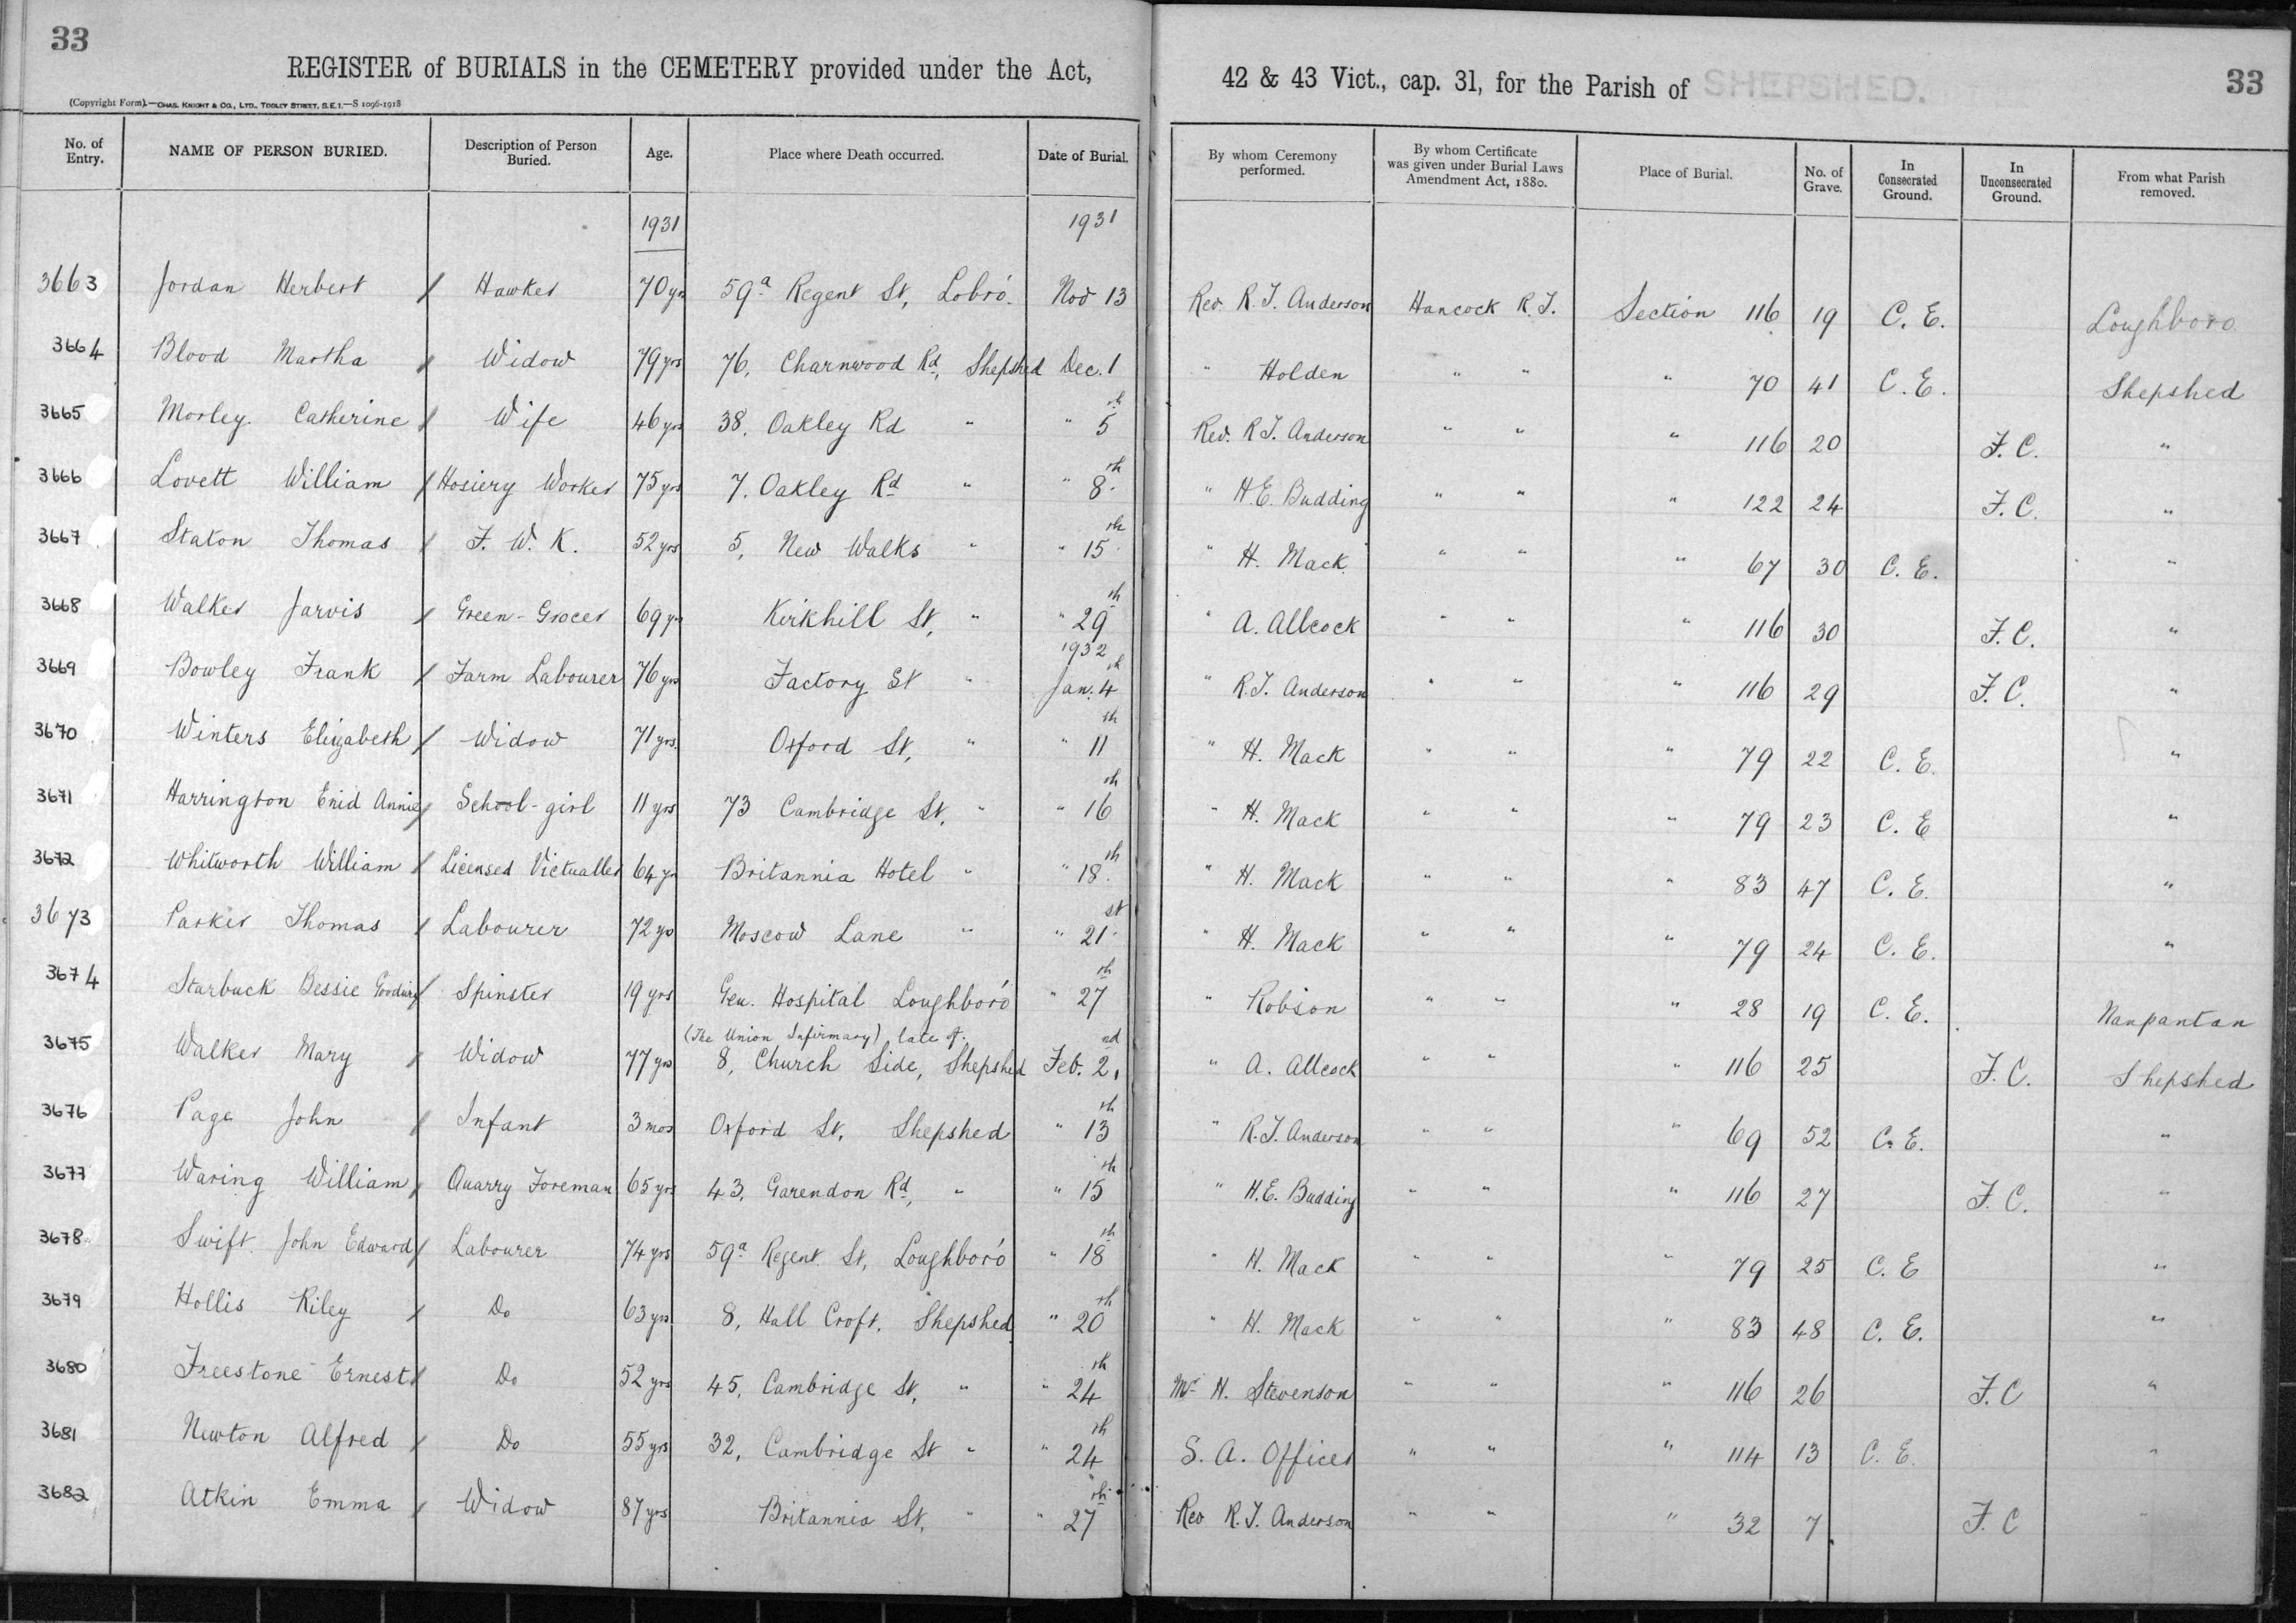 33
REGISTER of BURIALS in the CEMETERY provided under the Act, 42 & 43 Vict., cap. 31, for the Parish of SHEPSHED.
33
(Copyright Form).—CHAS. KNIGHT & CO., LTD., TOOLEY STREET, S.E.1.—S 1096-1918
No. of Entry. NAME OF PERSON BURIED. Description of Person Buried. Age. Place where Death occurred. Date of Burial. By whom Ceremony performed. By whom Certificate was given under Burial Laws Amendment Act, 1880. Place of Burial. No. of Grave. In Consecrated Ground. In Unconsecrated Ground. From what Parish removed.
1931 1931
3663 Jordan Herbert / Hawker 70 yrs 59a Regent St, Lobro'. Nov 13 Rev. R. T. Anderson Hancock R. T. Section 116 19 C. E. Loughboro
3664 Blood Martha / Widow 79 yrs 76, Charnwood Rd, Shepshed Dec. 1 " Holden " " " 70 41 C. E. Shepshed
3665 Morley. Catherine / Wife 46 yrs 38, Oakley Rd " " 5th Rev. R T. Anderson " " " 116 20 F. C. "
3666 Lovett William / Hosiery Worker 75 yrs 7, Oakley Rd " " 8th " H. E. Budding " " " 122 24 F. C. "
3667 Staton Thomas / F. W. K. 52 yrs 5, New Walks " " 15th " H. Mack " " " 67 30 C. E. "
3668 Walker Jarvis / Green-Grocer 69 yrs Kirkhill St, " " 29th " A. Allcock " " " 116 30 F. C. "
1932
3669 Bowley Frank / Farm Labourer 76 yrs Factory St " Jan. 4th " R. T. Anderson " " " 116 29 F. C. "
3670 Winters Elizabeth / Widow 71 yrs. Oxford St, " " 11th " H. Mack " " " 79 22 C. E. "
3671 Harrington Enid Annie / School-girl 11 yrs 73 Cambridge St, " " 16th " H. Mack " " " 79 23 C. E "
3672 Whitworth William / Licensed Victualler 64 yrs Britannia Hotel " " 18th " H. Mack " " " 83 47 C. E. "
3673 Parker Thomas / Labourer 72 yrs Moscow Lane " " 21st " H. Mack " " " 79 24 C. E. "
3674 Starbuck Bessie / Spinster 19 yrs Gen. Hospital Loughboro' " 27th " Robson " " " 28 19 C. E. Nanpantan
(The Union Infirmary) late of.
3675 Walker Mary / Widow 77 yrs 8, Church Side, Shepshed Feb. 2nd " A. Allcock " " " 116 25 F. C. Shepshed
3676 Page John / Infant 3 mos Oxford St, Shepshed " 13th " R. T. Anderson " " " 69 52 C. E. "
3677 Waring William / Quarry Foreman 65 yrs 43, Garendon Rd, " " 15th " H. E. Budding " " " 116 27 F. C. "
3678 Swift. John Edward / Labourer 74 yrs 59a Regent St, Loughboro' " 18th " H. Mack " " " 79 25 C. E "
3679 Hollis Riley / Do 63 yrs 8, Hall Croft, Shepshed " 20th " H. Mack " " " 83 48 C. E. "
3680 Freestone Ernest / Do 52 yrs 45, Cambridge St, " " 24th Mr H. Stevenson " " " 116 26 F. C "
3681 Newton Alfred / Do 55 yrs 32, Cambridge St " " 24th S. A. Officer " " " 114 13 C. E. "
3682 Atkin Emma / Widow 87 yrs Britannia St, " " 27th Rev R. T. Anderson " " " 32 7 F. C "